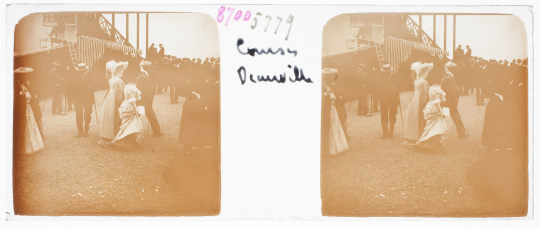 87005779
Courses
Deauville